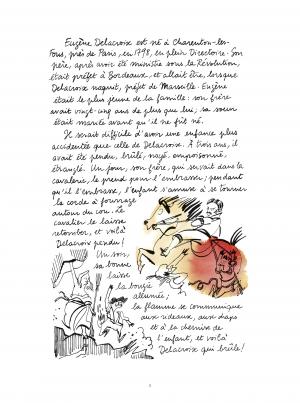 Eugène Delacroix est né à Charenton-les-
Fous, près de Paris, en 1798, en plein Directoire. Son
père, après avoir été ministre sous la Révolution,
était préfet à Bordeaux, et allait être, lorsque
Delacroix naquit, préfet de Marseille. Eugène
était le plus jeune de la famille : son frère
avait vingt-cinq ans de plus que lui, sa sœur
était mariée avant qu'il ne fût né.
Il serait difficile d'avoir une enfance plus
accidentée que celle de Delacroix. À trois ans, il
avait été pendu, brûlé, noyé, empoisonné,
étranglé. Un jour, son frère, qui servait dans la
cavalerie, le prend pour l'embrasser ; pendant
qu'il l'embrasse, l'enfant s'amuse à se tourner
la corde à fourrage
autour du cou. Le
cavalier le laisse
retomber, et voilà
Delacroix pendu !
Un soir,
sa bonne
laisse
la bougie
allumée,
la flamme se communique
aux rideaux, aux draps
et à la chemise de
l'enfant, et voilà
Delacroix qui brûle !